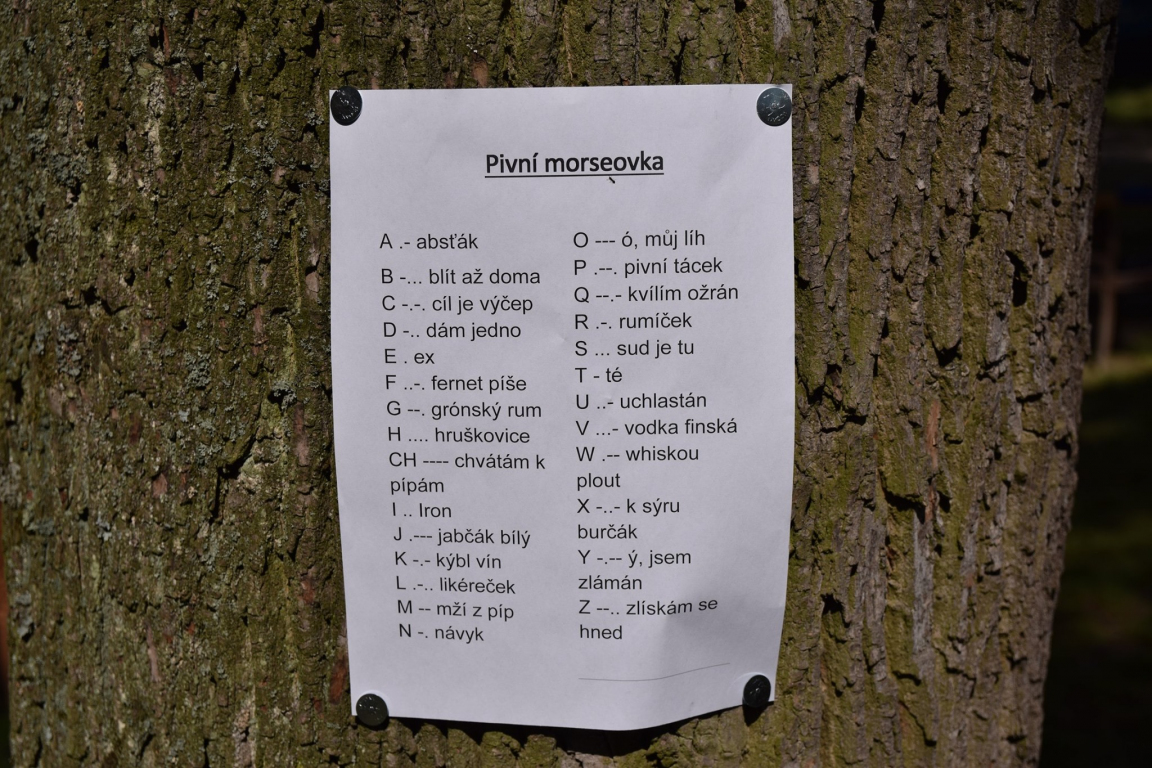 Pivní morseovka
A .- absťák
B -... blít až doma
C -.-. cíl je výčep
D -.. dám jedno
E . ex
F ..-. fernet píše
G --. grónský rum
H .... hruškovice
CH ---- chvátám k
pípám
I .. Iron
J .--- jabčák bílý
K -.- kýbl vín
L .-.. likéreček
M -- mží z píp
N -. návyk
O --- ó, můj líh
P .--. pivní tácek
Q --.- kvílím ožrán
R .-. rumíček
S ... sud je tu
T - té
U ..- uchlastán
V ...- vodka finská
W .-- whiskou
plout
X -..- k sýru
burčák
Y -.-- ý, jsem
zlámán
Z --.. zlískám se
hned